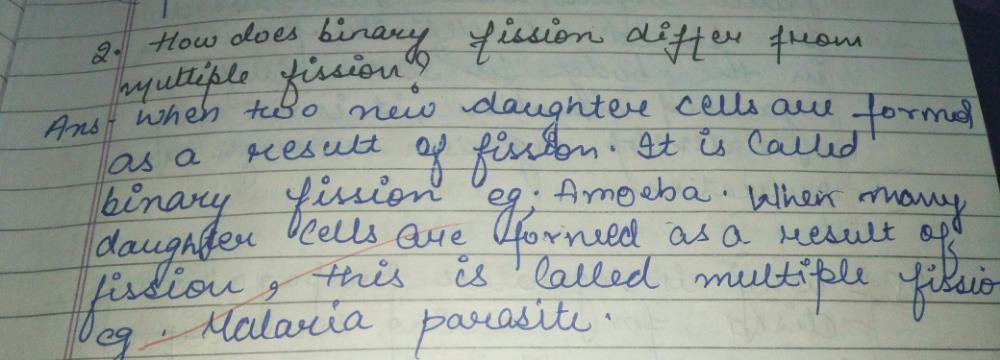 2. How does binary fission differ from
multiple fission?
Ans- When two new daughter cells are formed
as a result of fission. It is called
binary fission eg. Amoeba. When many
daughter cells are formed as a result of
fission, this is called multiple fissio
eg. Malaria parasite.